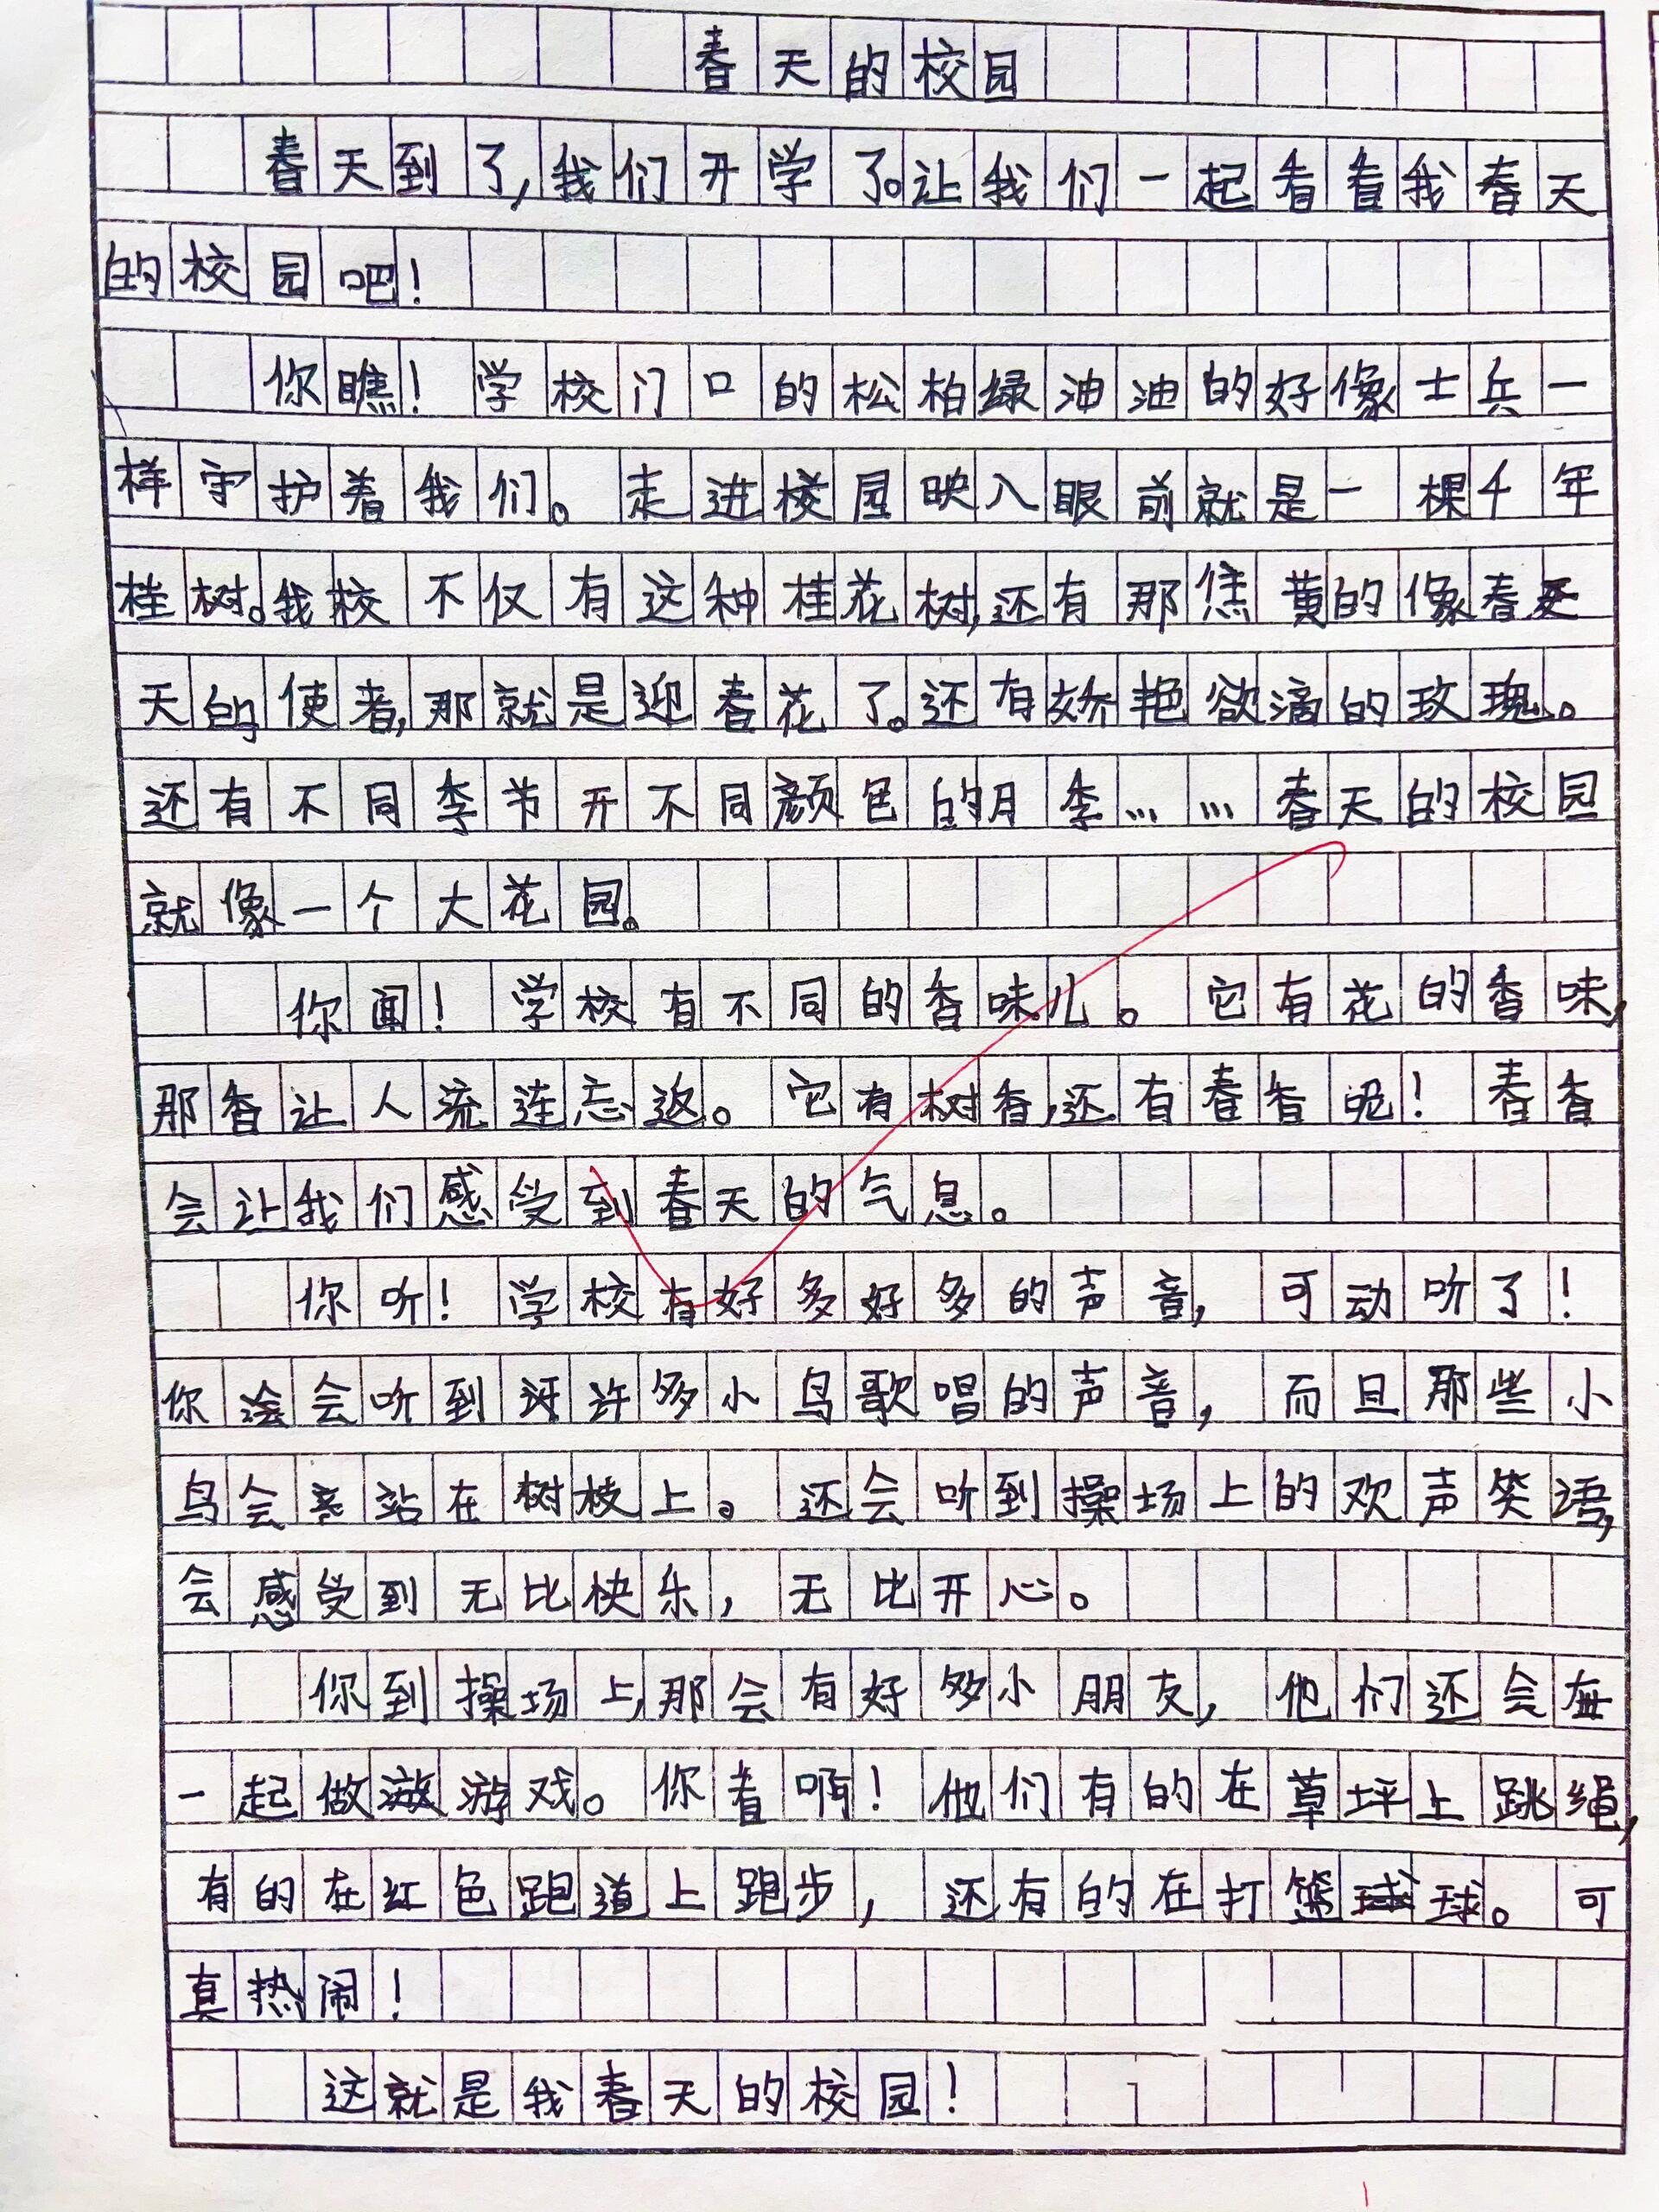 春天的校园
春天到了,我们开学了。让我们一起看看我春天
的校园吧!
你瞧!学校门口的松柏绿油油的好像士兵一
样守护着我们。走进校园映入眼前就是一棵千年
桂树。我校不仅有这种桂花树,还有那焦黄的像春
天的使者,那就是迎春花了。还有娇艳欲滴的玫瑰。
还有不同季节开不同颜色的月季……春天的校园
就像一个大花园。
你闻!学校有不同的香味儿。它有花的香味,
那香让人流连忘返。它有树香,还有春香呢!春香
会让我们感受到春天的气息。
你听!学校有好多好多的声音,可动听了!
你会听到许多小鸟歌唱的声音,而且那些小
鸟会站在树枝上。还会听到操场上的欢声笑语,
会感受到无比快乐,无比开心。
你到操场上,那会有好多小朋友,他们还会在
一起做游戏。你看啊!他们有的在草坪上跳绳,
有的在红色跑道上跑步,还有的在打篮球。可
真热闹!
这就是我春天的校园!